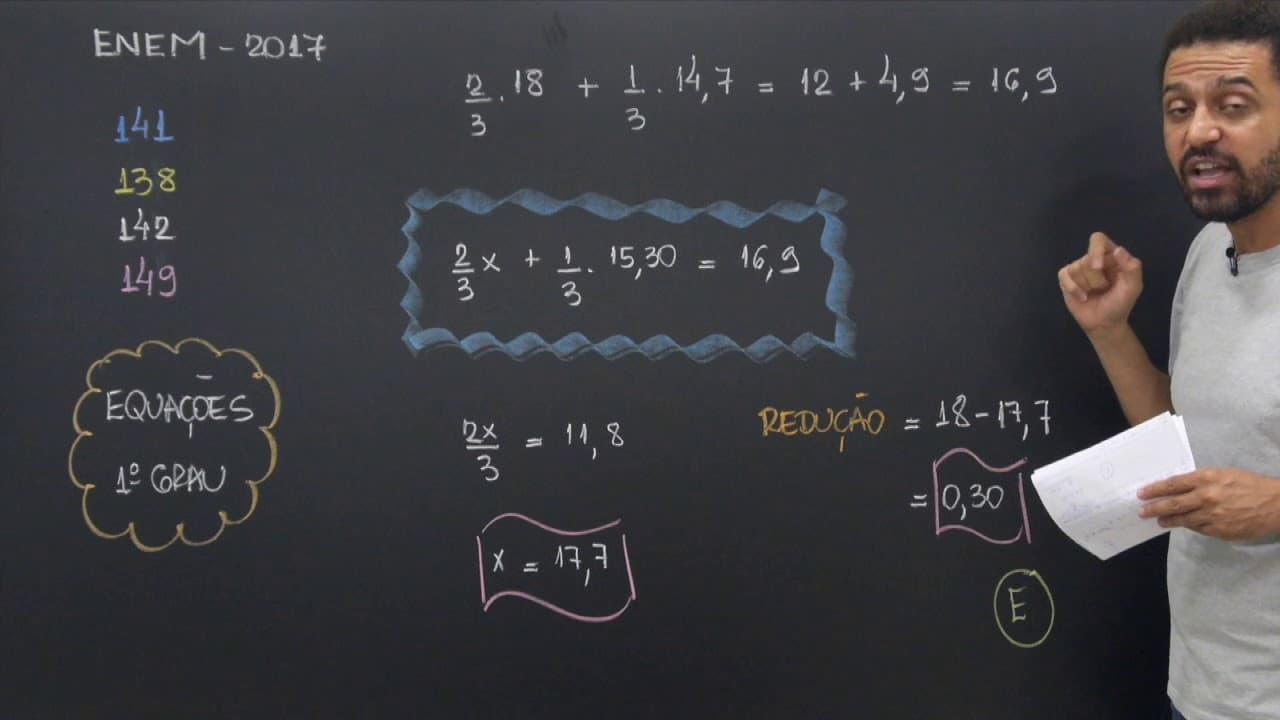 ENEM - 2017
141
138
142
149
EQUAÇÕES
1º GRAU
2/3 . 18 + 1/3 . 14,7 = 12 + 4,9 = 16,9
2/3 x + 1/3 . 15,30 = 16,9
2x/3 = 11,8
x = 17,7
REDUÇÃO = 18 - 17,7
= 0,30
E